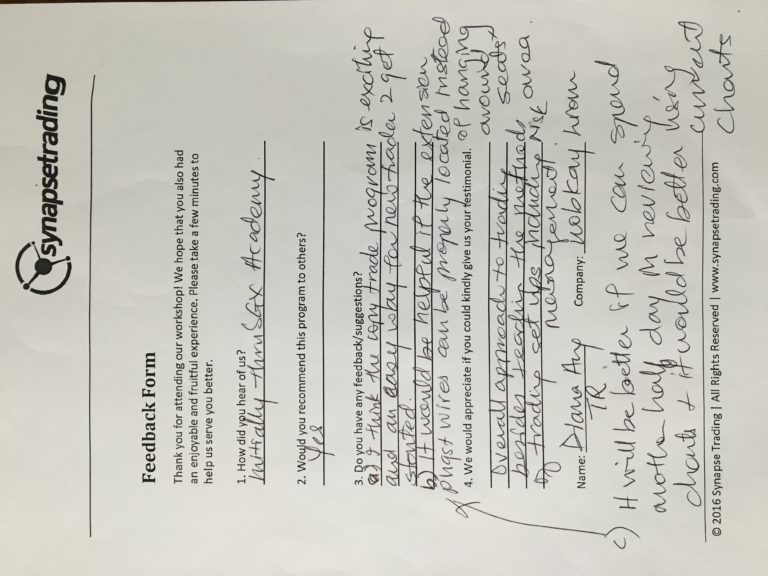 synapsetrading
Feedback Form
Thank you for attending our workshop! We hope that you also had
an enjoyable and fruitful experience. Please take a few minutes to
help us serve you better.
1. How did you hear of us?
Initially thru SGX Academy.
2. Would you recommend this program to others?
Yes
3. Do you have any feedback/suggestions?
a) I think the copy trade program is exciting
and an easy way for new trader 2 get
started.
b) It would be helpful if the extension
plugs+ wires can be properly located instead
of hanging
around
seats+
area.
4. We would appreciate if you could kindly give us your testimonial.
Overall approach to trading
besides teaching the methods
of trading set ups including risk
management.
Name: Diana Ang Company:
TR
c) It will be better if we can spend
another half day in reviewing
charts + it would be better using
current
charts
© 2016 Synapse Trading | All Rights Reserved | www.synapsetrading.com